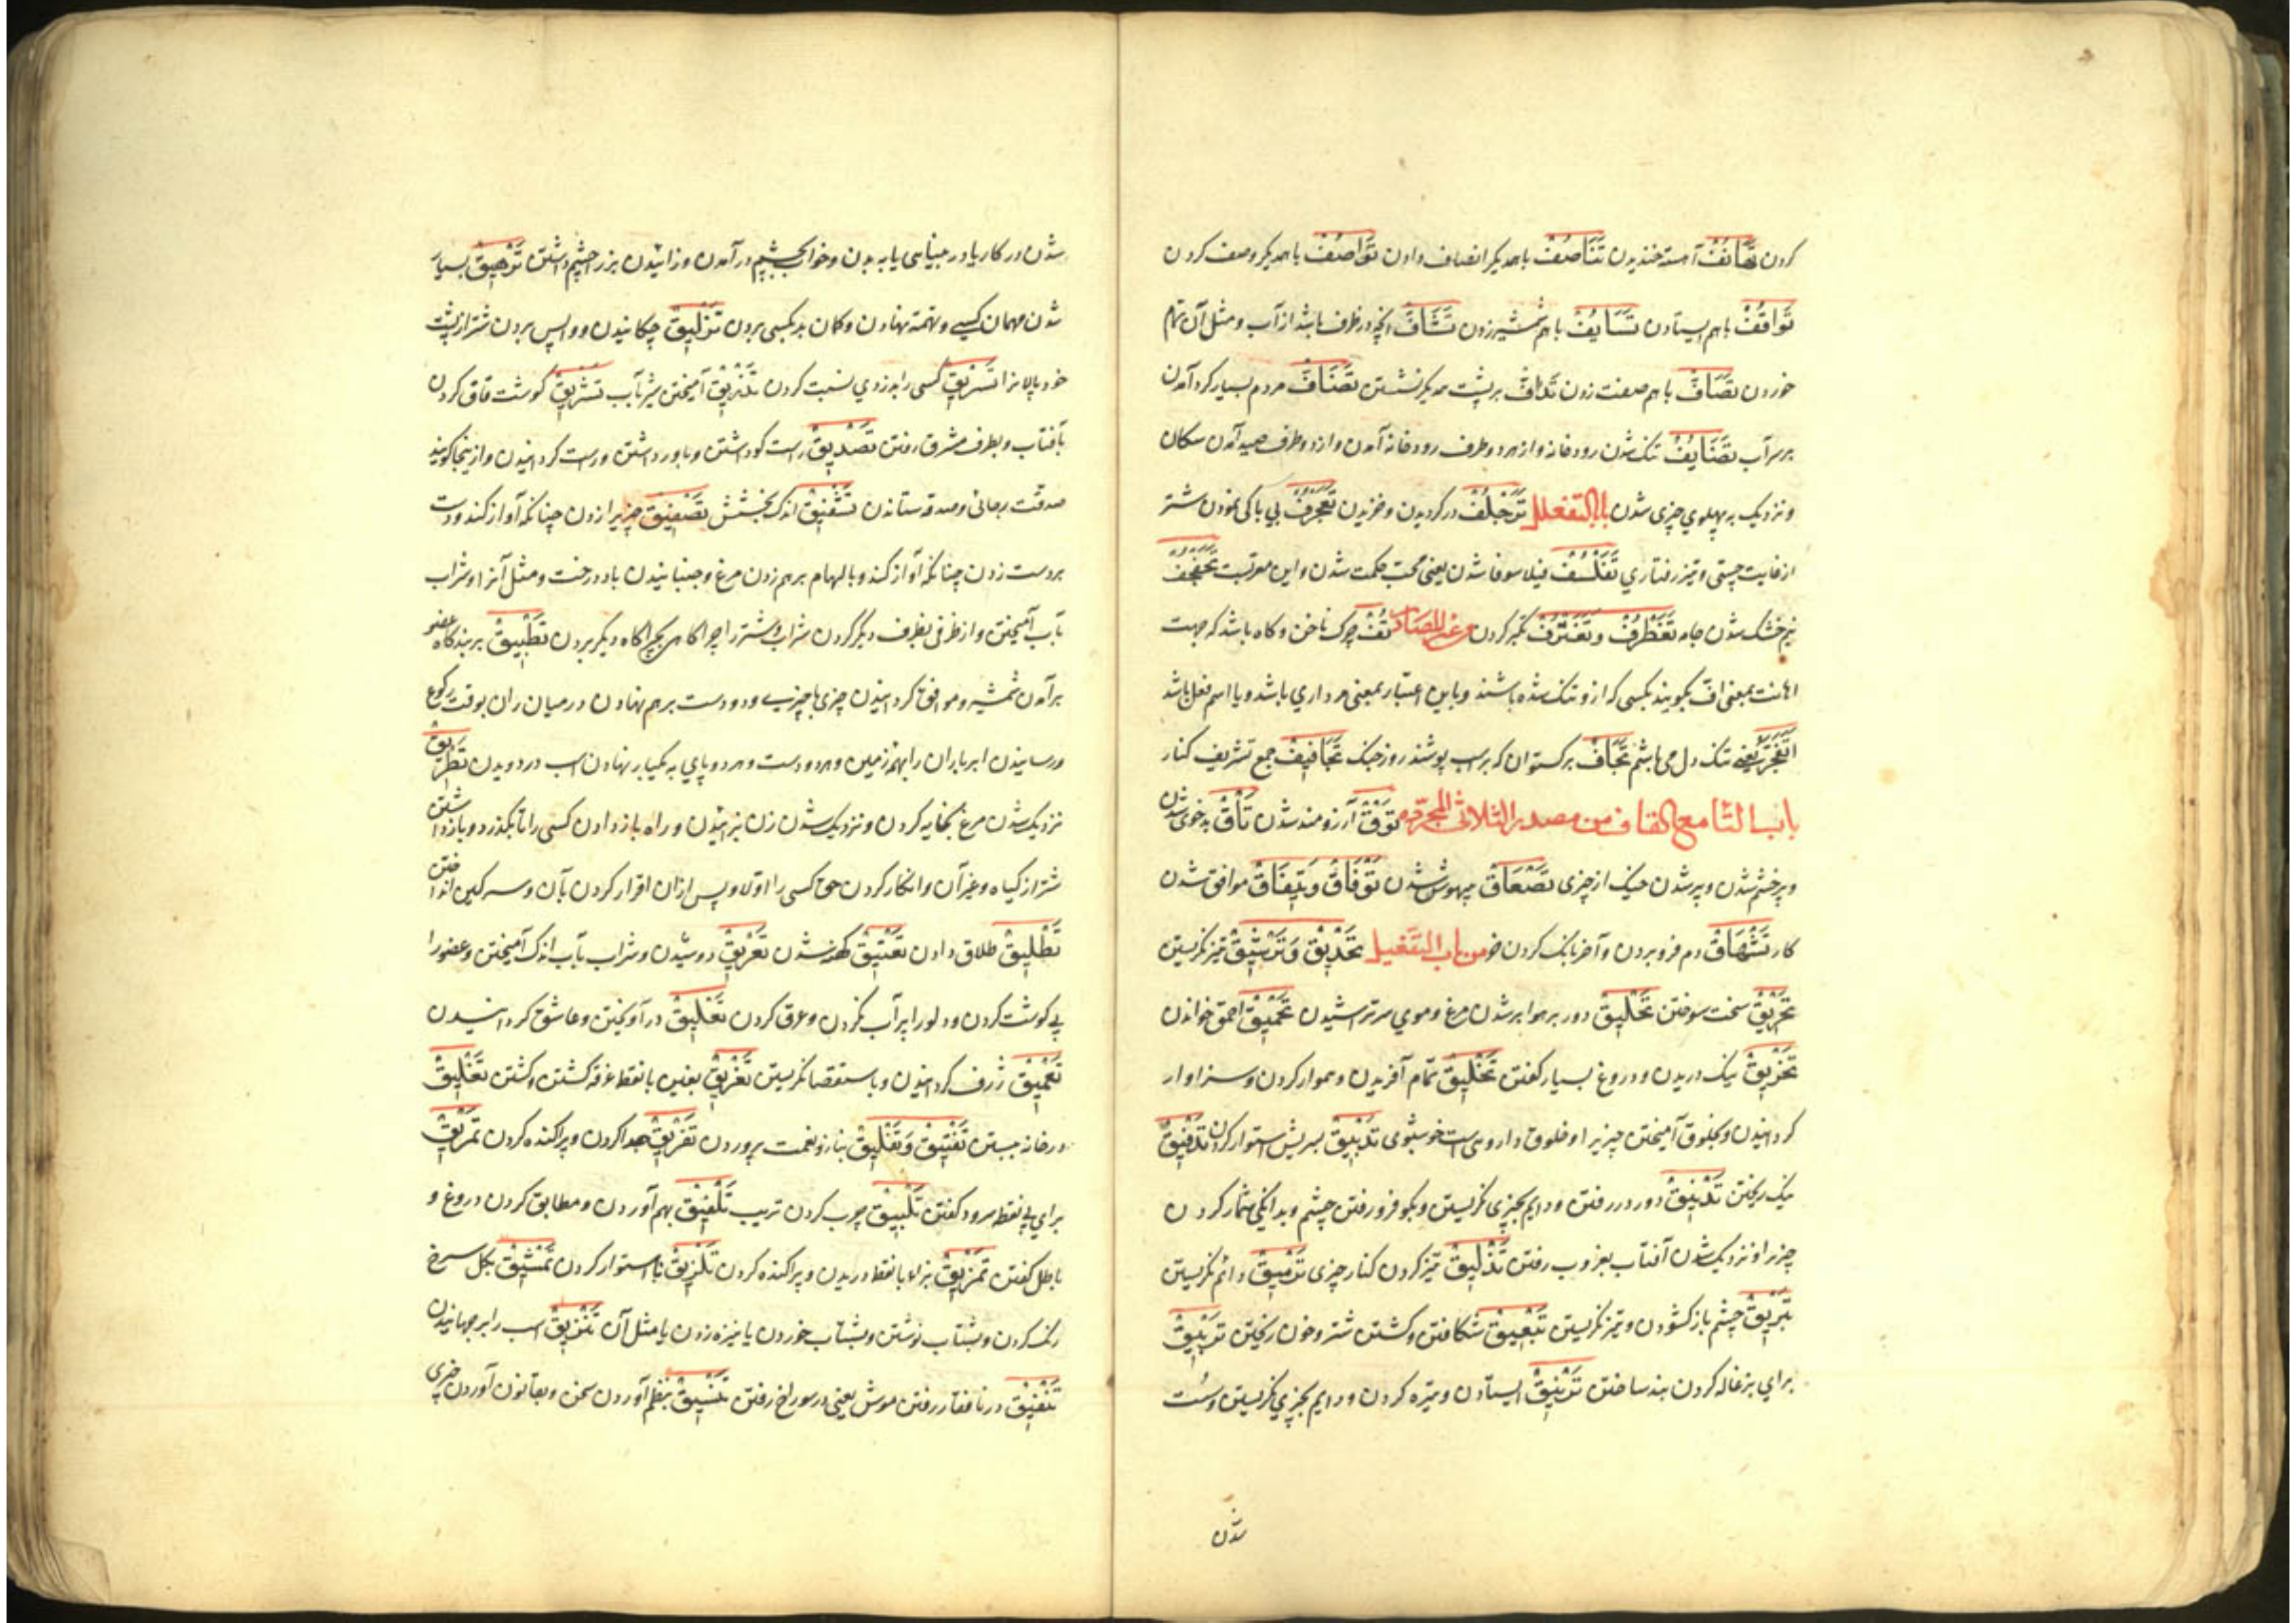 کردن تَهَانُفْ آهسته خندیدن تَنَاصُفْ با همدیگر انصاف دادن تَوَاصُفْ با همدیگر وصف کردن
تَوَاقُفْ با هم ایستادن تَسَایُفْ با هم شمشیر زدن تَشَافّ آنچه در ظرف باشد از آب و مثل آن تمام
خوردن تَصَافّ با هم صف زدن تَدَافّ بر پشت همدیگر نشستن تَضَافّ مردم بسیار گرد آمدن
بر سر آب تَضَایُفْ تنک شدن رودخانه و از هر دو طرف رودخانه آمدن و از دو طرف صید آمدن سکان
و نزدیک به پهلوی چیزی شدن باب التفعلل تَزَحْلُفْ در گردیدن و خزیدن تَعَجْرُفْ بی باکی نمودن شتر
از غایت چستی و تیز رفتاری تَفَلْسُفْ فیلاسوفا شدن یعنی محب حکمت شدن و این معربست تَجَفْجُفْ
نیم خشک شدن جامه تَغَطْرُفْ وتَغَتْرُفْ تکبر کردن من غیر المصادر تُفّ چرک ناخن و گاه باشد که جهت
اهانت بمعنی افّ بگویند بکسی که ازو تنک شده باشند و باین اعتبار بمعنی مرداری باشد و یا اسم فعل باشد
یعنی تنک دل می باشم تَجَافّ برکستوان که بر اسب پوشند روز جنک تَجَافِیفْ جمع تشریف کنار
باب التا مع القاف من مصدر الثلاثی المجرّد تَوْقْ آرزومند شدن تَأَقْ بدخوی شدن
و پر خشم شدن و پر شدن خیک از چیزی تَصْعَاقْ بیهوش شدن تَوْفَاقْ وَتِیفَاقْ موافق شدن
کار تَشْهَاقْ دم فرو بردن و آخر بانک کردن خر من باب التفعیل تَحْدِیقْ وَتَرْشِیقْ تیز نکریستن
تَحْرِیقْ سخت سوختن تَحْلِیقْ دور بر هوا بر شدن مرغ و موی سر تراشیدن تَحْمِیقْ احمق خواندن
تَخْرِیقْ نیک دریدن و دروغ بسیار گفتن تَخْلِیقْ تمام آفریدن و هموار کردن و سزاوار
گردانیدن و بخلوق آمیختن چیزیرا و خلوق داروی است خوشبوی تَدْبِیقْ بسریش استوار کردن تَدْفِیقْ
نیک ریختن تَدْنِیقْ دور در رفتن و دایم بچیزی نکریستن و بکو فرو رفتن چشم و بدانکی شمار کردن
چیزرا و نزدیک شدن آفتاب بغروب رفتن تَذْلِیقْ تیز کردن کنار چیزی تَرْمِیقْ دائم نکریستن
تَبْرِیقْ چشم باز کشودن و تیز نکریستن تَبْعِیقْ شکافتن و کشتن شتر و خون ریختن تَرْبِیقْ
برای بزغاله کردن بند ساختن تَرْنِیقْ ایستادن و تیره کردن و دایم بچیزی نکریستن و سست
شدن
شدن در کار یا در بینایی یا به بدن و خواب بچشم در آمدن تَرْهِیقْ بسیار
شدن مهمان کسی و تهمة نهادن و کمان بد بکسی بردن تَزْلِیقْ چکانیدن و واپس بردن شتر از پشت
خود پالانرا تَسْرِیقْ کسی را بدزدی نسبت کردن تَذْرِیقْ آمیختن شیر بآب تَشْرِیقْ گوشت قاق کردن
بآفتاب و بطرف مشرق رفتن تَصْدِیقْ راست گو داشتن و باور داشتن و راست گردانیدن و ازینجا گویند
صدقت رجائی و صدقه ستاندن تَشْفِیقْ اندک بخشش تَصْفِیقْ چیزیرا زدن چنانکه آواز کند و دست
بر دست زدن چنانکه آواز کند و بالها بر هم زدن مرغ و جنبانیدن باد درخت و مثل آنرا و شراب
بآب آمیختن و از ظرفی بظرف دیگر کردن شراب و شتر را چراگاهی بچراگاه دیگر بردن تَطْبِیقْ بر بندگاه عضو
بر آمدن شمشیر و موافق گردانیدن چیزی با چیزی و دو دست بر هم نهادن در میان ران بوقت رکوع
و رسانیدن ابر باران را بهمه زمین و هر دو دست و هر دو پای به یکبار نهادن اسب در دویدن تَطْرِیقْ
نزدیک شدن مرغ بخایه کردن و نزدیک شدن زن بزائیدن و راه باز دادن کسی را تا بگذرد و باز داشتن
شتر از گیاه و غیر آن و انکار کردن حق کسی را اولا و پس از آن اقرار کردن بآن و سرکین انداختن
تَطْلِیقْ طلاق دادن تَعْتِیقْ کهنه شدن تَعْرِیقْ دوشیدن و شراب بآب اندک آمیختن و عضورا
بی گوشت کردن و دلورا پر آب نکردن و عرق کردن تَعْلِیقْ در آویختن و عاشق گردانیدن
تَعْمِیقْ ژرف گردانیدن و باستقصا نکریستن تَغْرِیقْ بغین با نقطه غرقه کشتن و کشتن تَغْلِیقْ
در خانه بستن تَفْتِیقْ وَتَفْنِیقْ بناز و نعمت پروردن تَفْرِیقْ جدا کردن و پراکنده کردن تَمْرِیقْ
برای بی نقطه سرود گفتن تَلْبِیقْ چرب کردن ترید تَلْفِیقْ بهم آوردن و مطابق کردن دروغ و
باطل گفتن تَمْزِیقْ بزاء با نقطه دریدن و پراکنده کردن تَلْزِیقْ نا استوار کردن تَمْشِیقْ بکل سرخ
رنک کردن و بشتاب نوشتن و بشتاب خوردن یا نیزه زدن یا مثل آن تَنْزِیقْ اسب را بر جهانیدن
تَنْفِیقْ در نافقا در رفتن موش یعنی در سوراخ رفتن تَنْسِیقْ بنظم آوردن سخن و بقانون آوردن چیزی